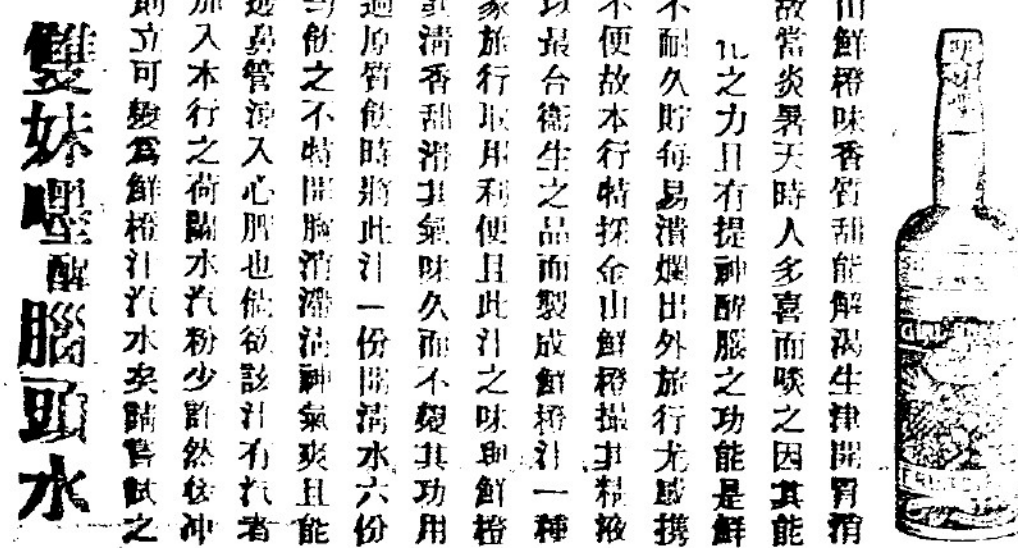 山鮮橙味香質甜能解渴生津開胃消
故當炎暑天時人多喜而啖之因其能
化之力且有提神醒腦之功能是鮮
不耐久貯每易潰爛出外旅行尤感携
不便故本行特採金山鮮橙撮其精液
以最合衛生之品而製成鮮橙汁一種
家旅行取用利便且此汁之味與鮮橙
其清香甜滑其氣味久而不變其功用
過原質飲時將此汁一份開清水六份
飲之不特開胸消滯清神氣爽且能
透鼻管涼入心脾也倘欲該汁有汽者
加入本行之荷蘭水汽粉少許然後冲
則立可變爲鮮橙汁汽水矣請嘗試之
雙妹嚜醒腦頭水